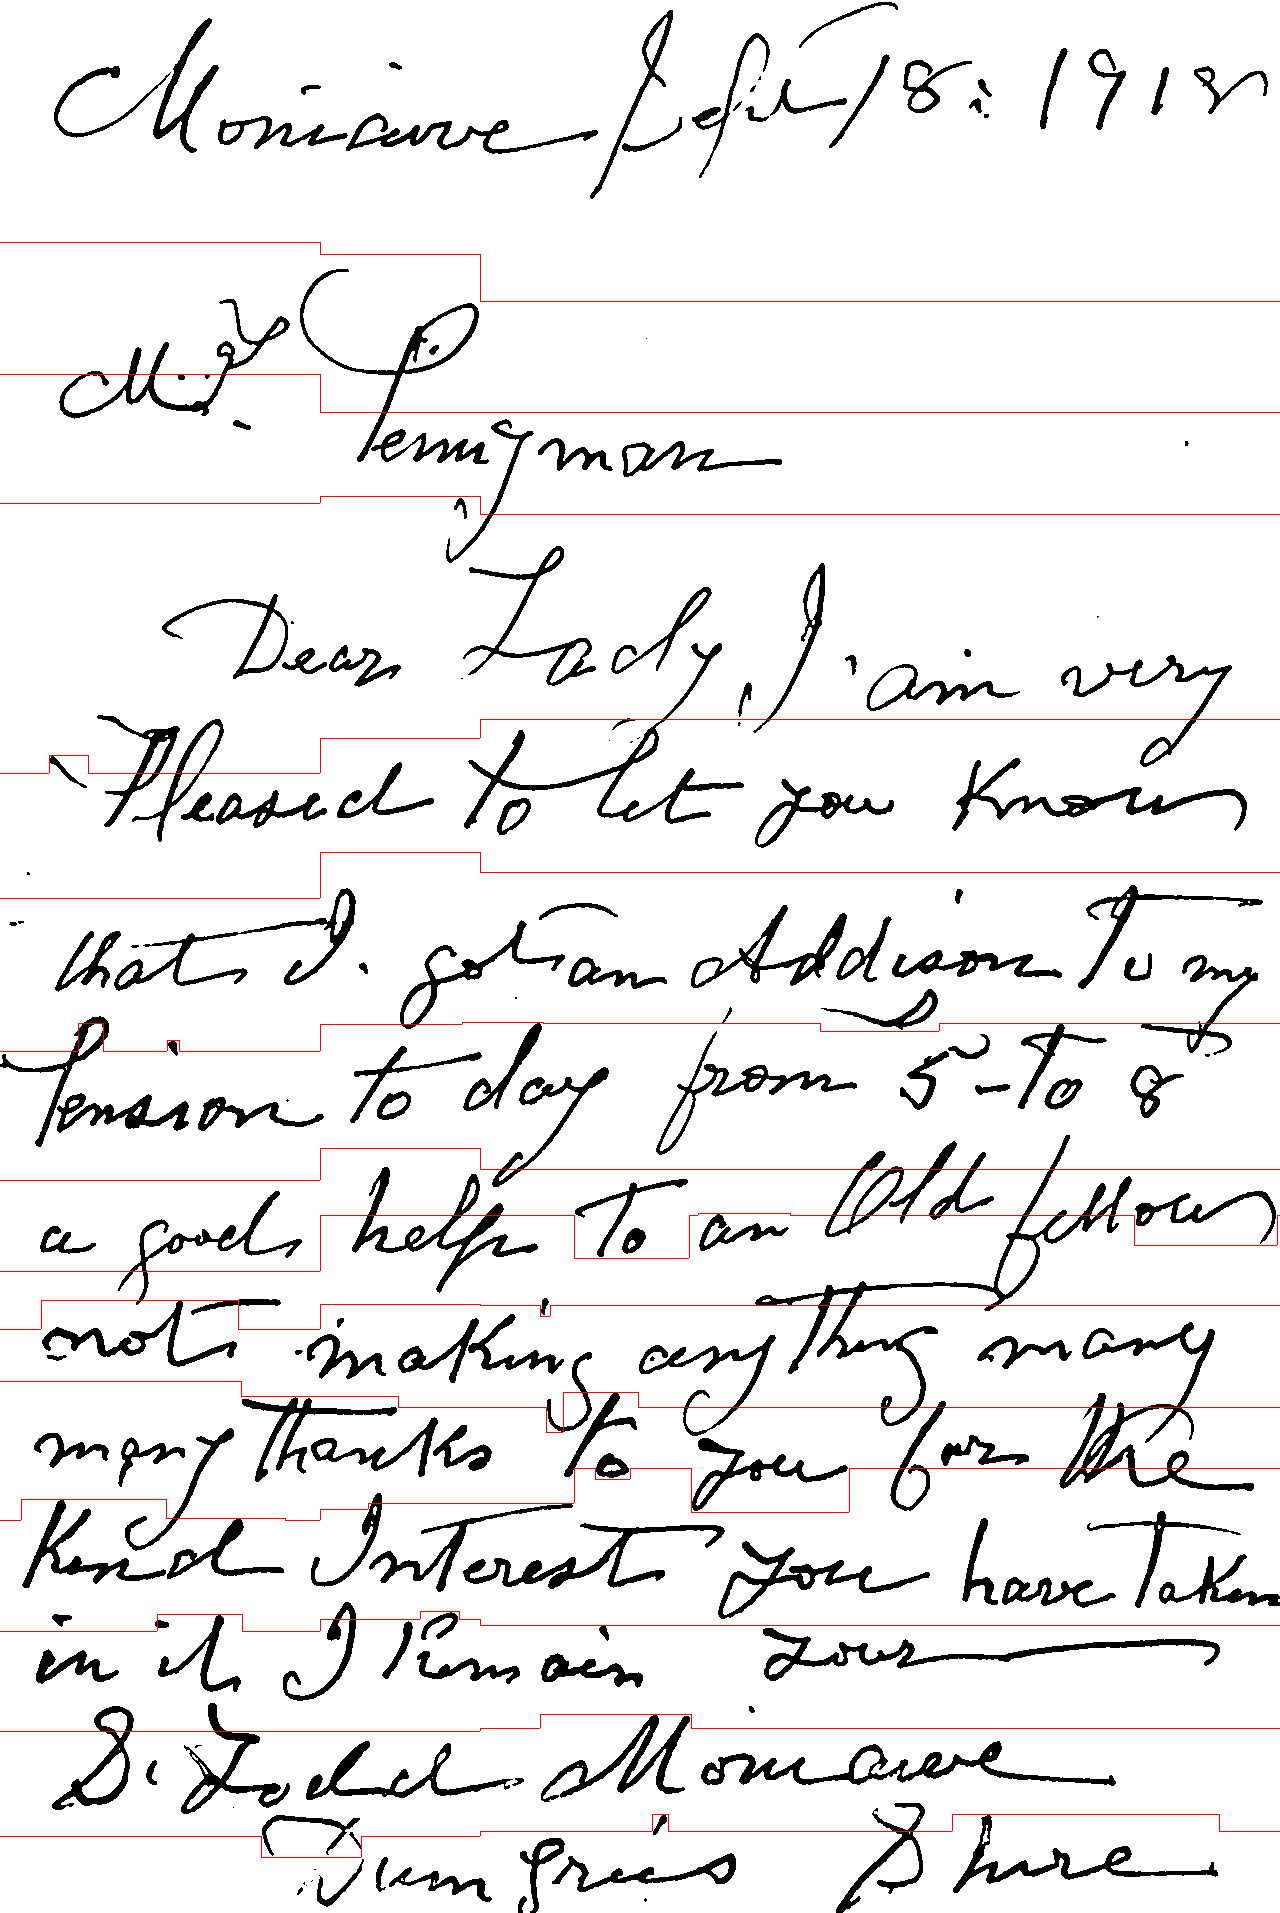 Moniaive Sept 18: 1918
Mrs
Pennyman
Dear Lady, I am very
Pleased to let you Know
that I. got an Addison To my
Pension to day from 5-To 8
a good help To an Old fellow
not making any Thing many
many Thanks to you for the
Kind Interest you have Taken
in it I Remain your
S. Todd Moniaive
Dumfries Shire